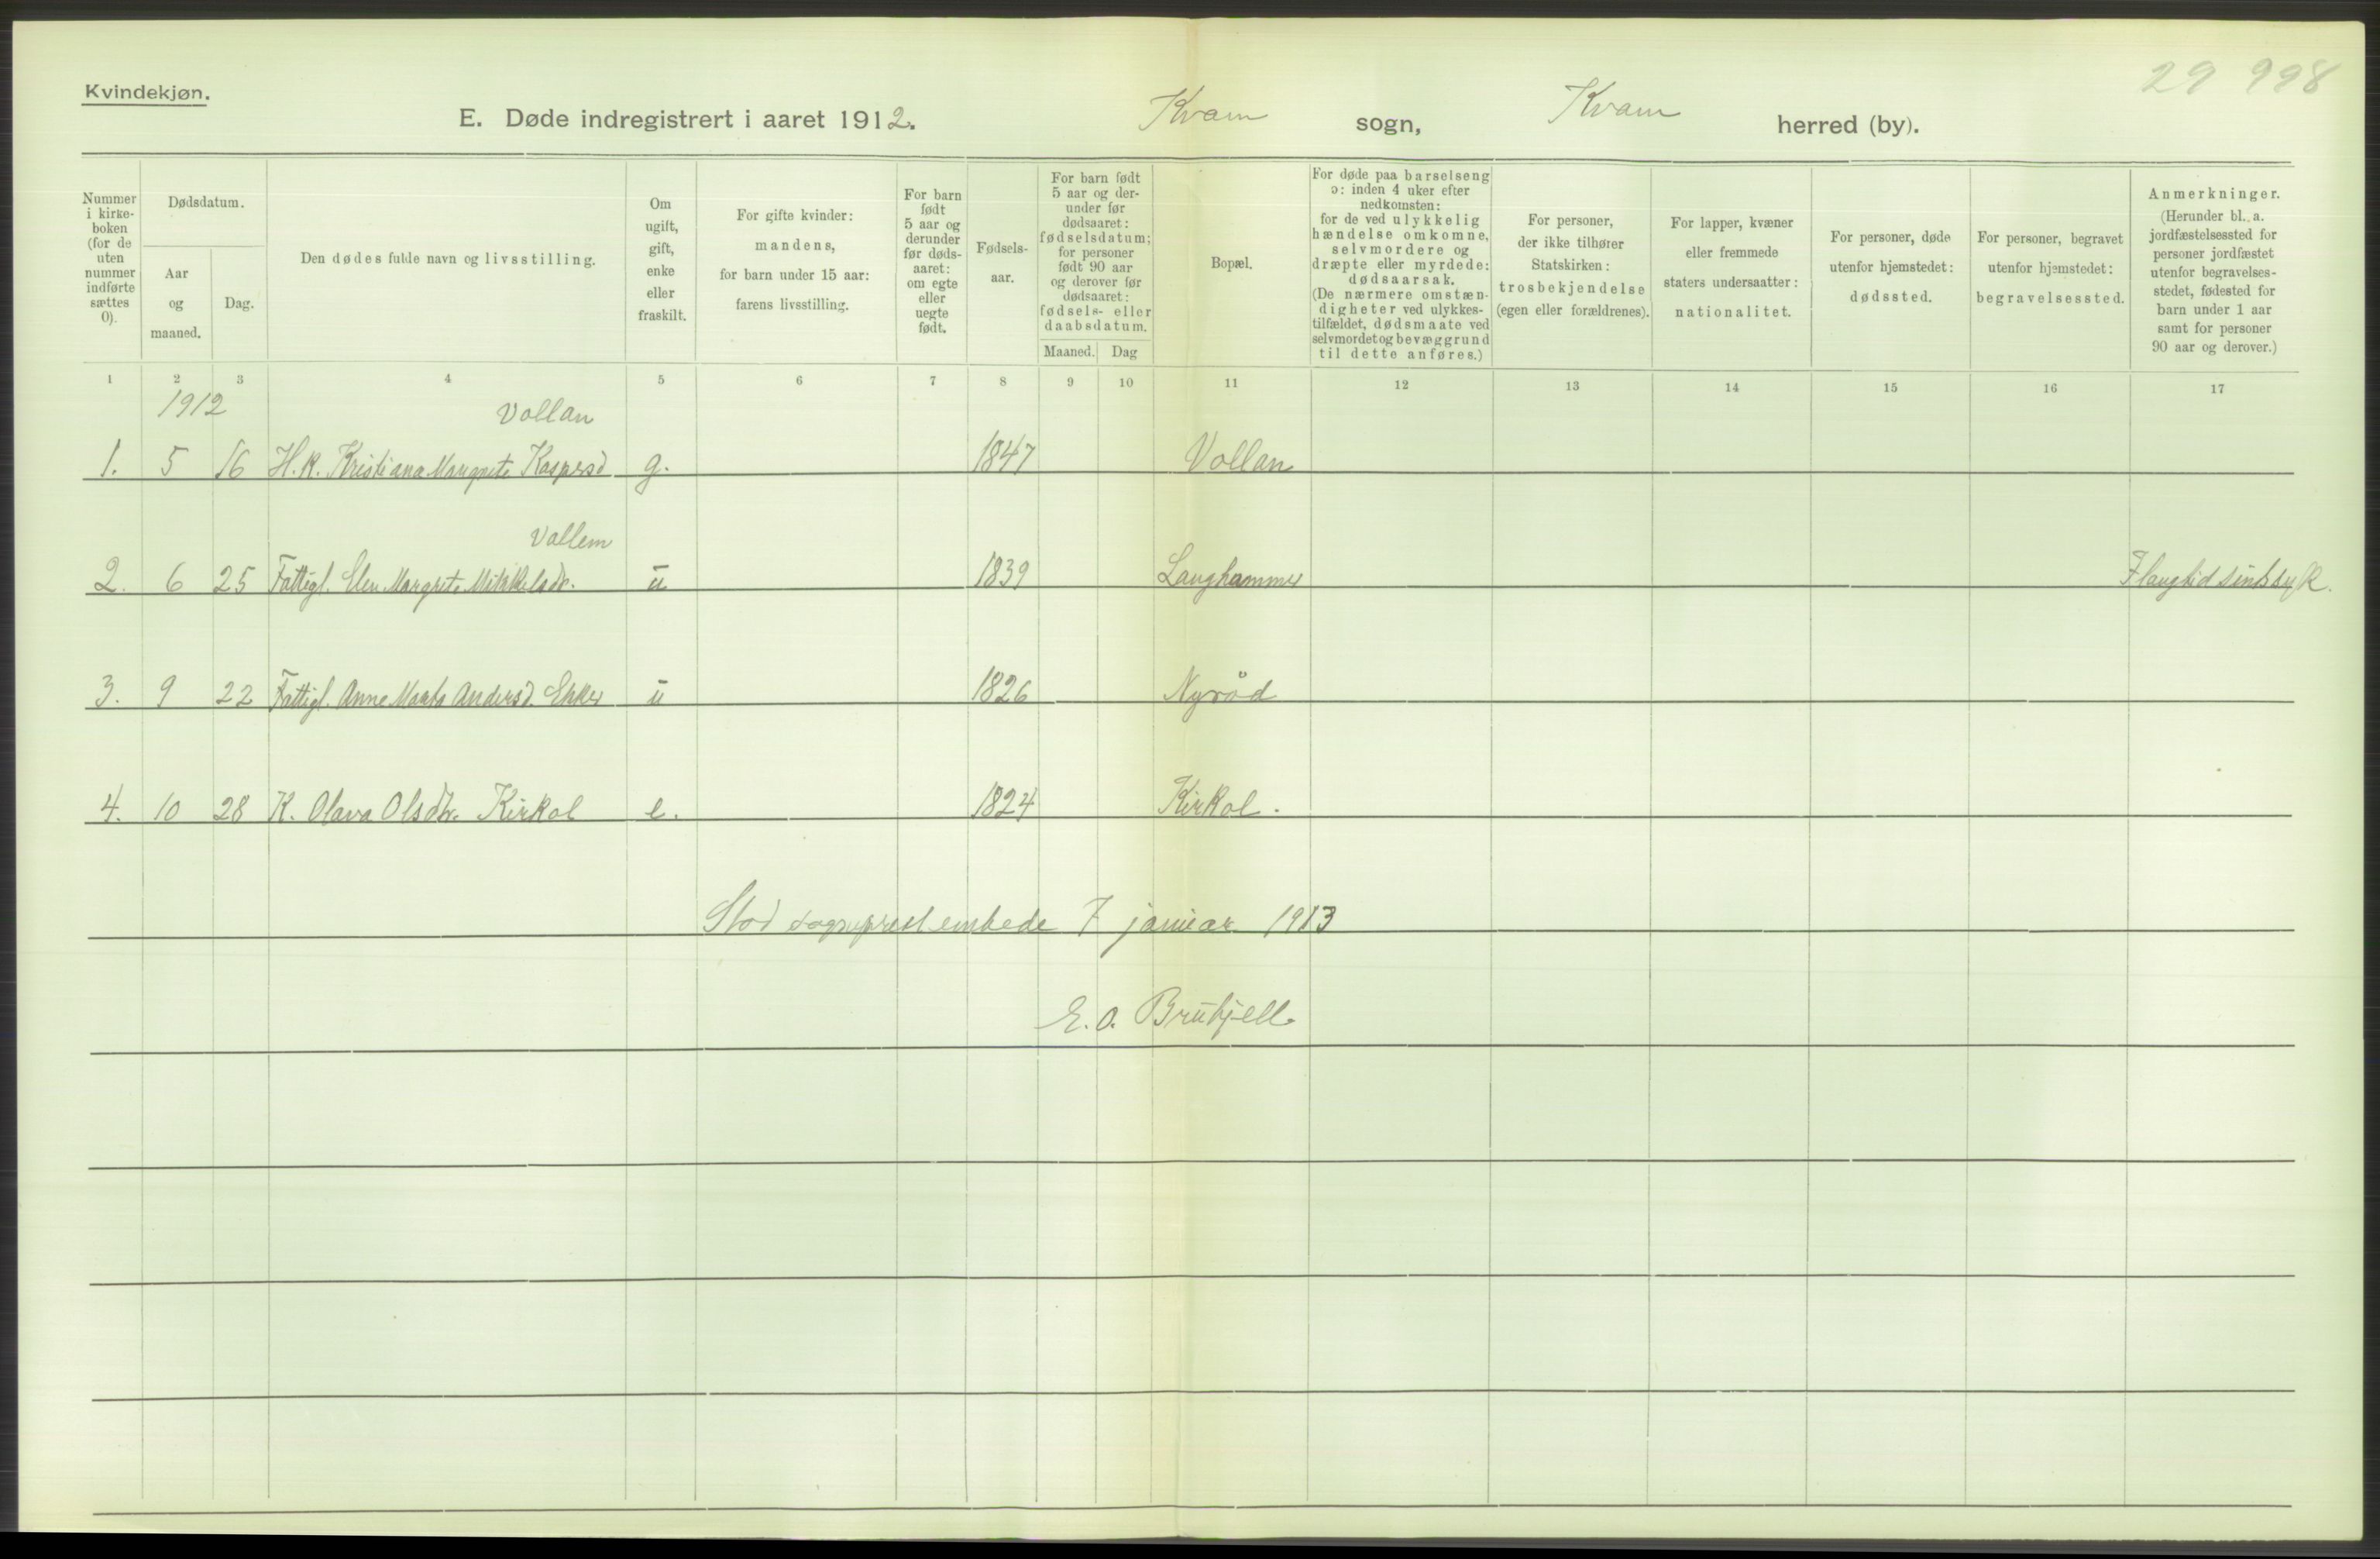 29 998
Kvindekjøn.
E. Døde indregistrert i aaret 1912. Kvam sogn, Kvam herred (by).
Nummer i kirke- boken (for de uten nummer indførte sættes 0).
Dødsdatum.
Aar og maaned.
Dag.
Den dødes fulde navn og livsstilling.
Om ugift, gift, enke eller fraskilt.
For gifte kvinder: mandens, for barn under 15 aar: farens livsstilling.
For barn født 5 aar og derunder før døds- aaret: om egte eller uegte født.
Fødsels- aar.
For barn født 5 aar og der- under før dødsaaret: fødselsdatum; for personer født 90 aar og derover før dødsaaret: fødsels- eller daabsdatum.
Maaned. Dag
Bopæl.
For døde paa barselseng ɔ: inden 4 uker efter nedkomsten: for de ved ulykkelig hændelse omkomne, selvmordere og dræpte eller myrdede: dødsaarsak. (De nærmere omstæn- digheter ved ulykkes- tilfældet, dødsmaate ved selvmordet og bevæggrund til dette anføres.)
For personer, der ikke tilhører Statskirken: trosbekjendelse (egen eller forældrenes).
For lapper, kvæner eller fremmede staters undersaatter: nationalitet.
For personer, døde utenfor hjemstedet: dødssted.
For personer, begravet utenfor hjemstedet: begravelsessted.
Anmerkninger. (Herunder bl. a. jordfæstelsessted for personer jordfæstet utenfor begravelses- stedet, fødested for barn under 1 aar samt for personer 90 aar og derover.)
1 2 3 4 5 6 7 8 9 10 11 12 13 14 15 16 17
1912
Vollan
1. 5 16 H.K. Kristiana Margrete Kaspersd g. 1847 Vollan
Vallem
2. 6 25 Fattigl. Elen Margrete Mikkelsdr. u 1839 Langhammer I langtid sindssyk.
3. 9 22 Fattigl. Anne Marta Andersd. Ekker u 1826 Nyrød
4. 10 28 K. Olava Olsdtr. Kirkol e. 1824 Kirkol.
Stod sogneprestembede 7 januar 1913
E. O. Brufjell